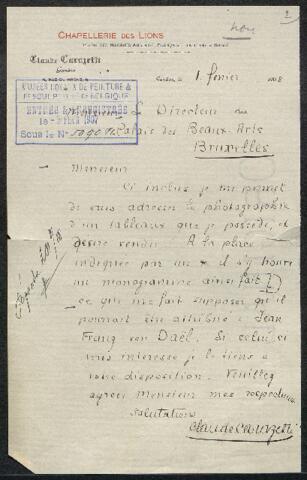 non
2
CHAPELLERIE DES LIONS
Claude
Genève
Genève, le 1. fevrier 1908
MUSÉES ROYAUX DE PEINTURE &
DE SCULPTURE DE BELGIQUE
ENTRÉE ENREGISTRÉE
Sous le Nº
Monsieur Le Directeur du
Palais des Beaux-Arts
Bruxelles
Monsieur
Ci inclus je me permet
de vous adresser la photographie
d'un tableaux que je possède, et
désire vendre. A la place
indiquée par un x il s'y trouve
un monogramme ainsi fait
ce qui me fait supposer qu'il
pourrait être attribué à Jean
Franz von Daël. Si celui-ci
vous interesse je le tiens à
votre disposition. Veuillez
agréer Monsieur mes respectueuses
salutations
Claude